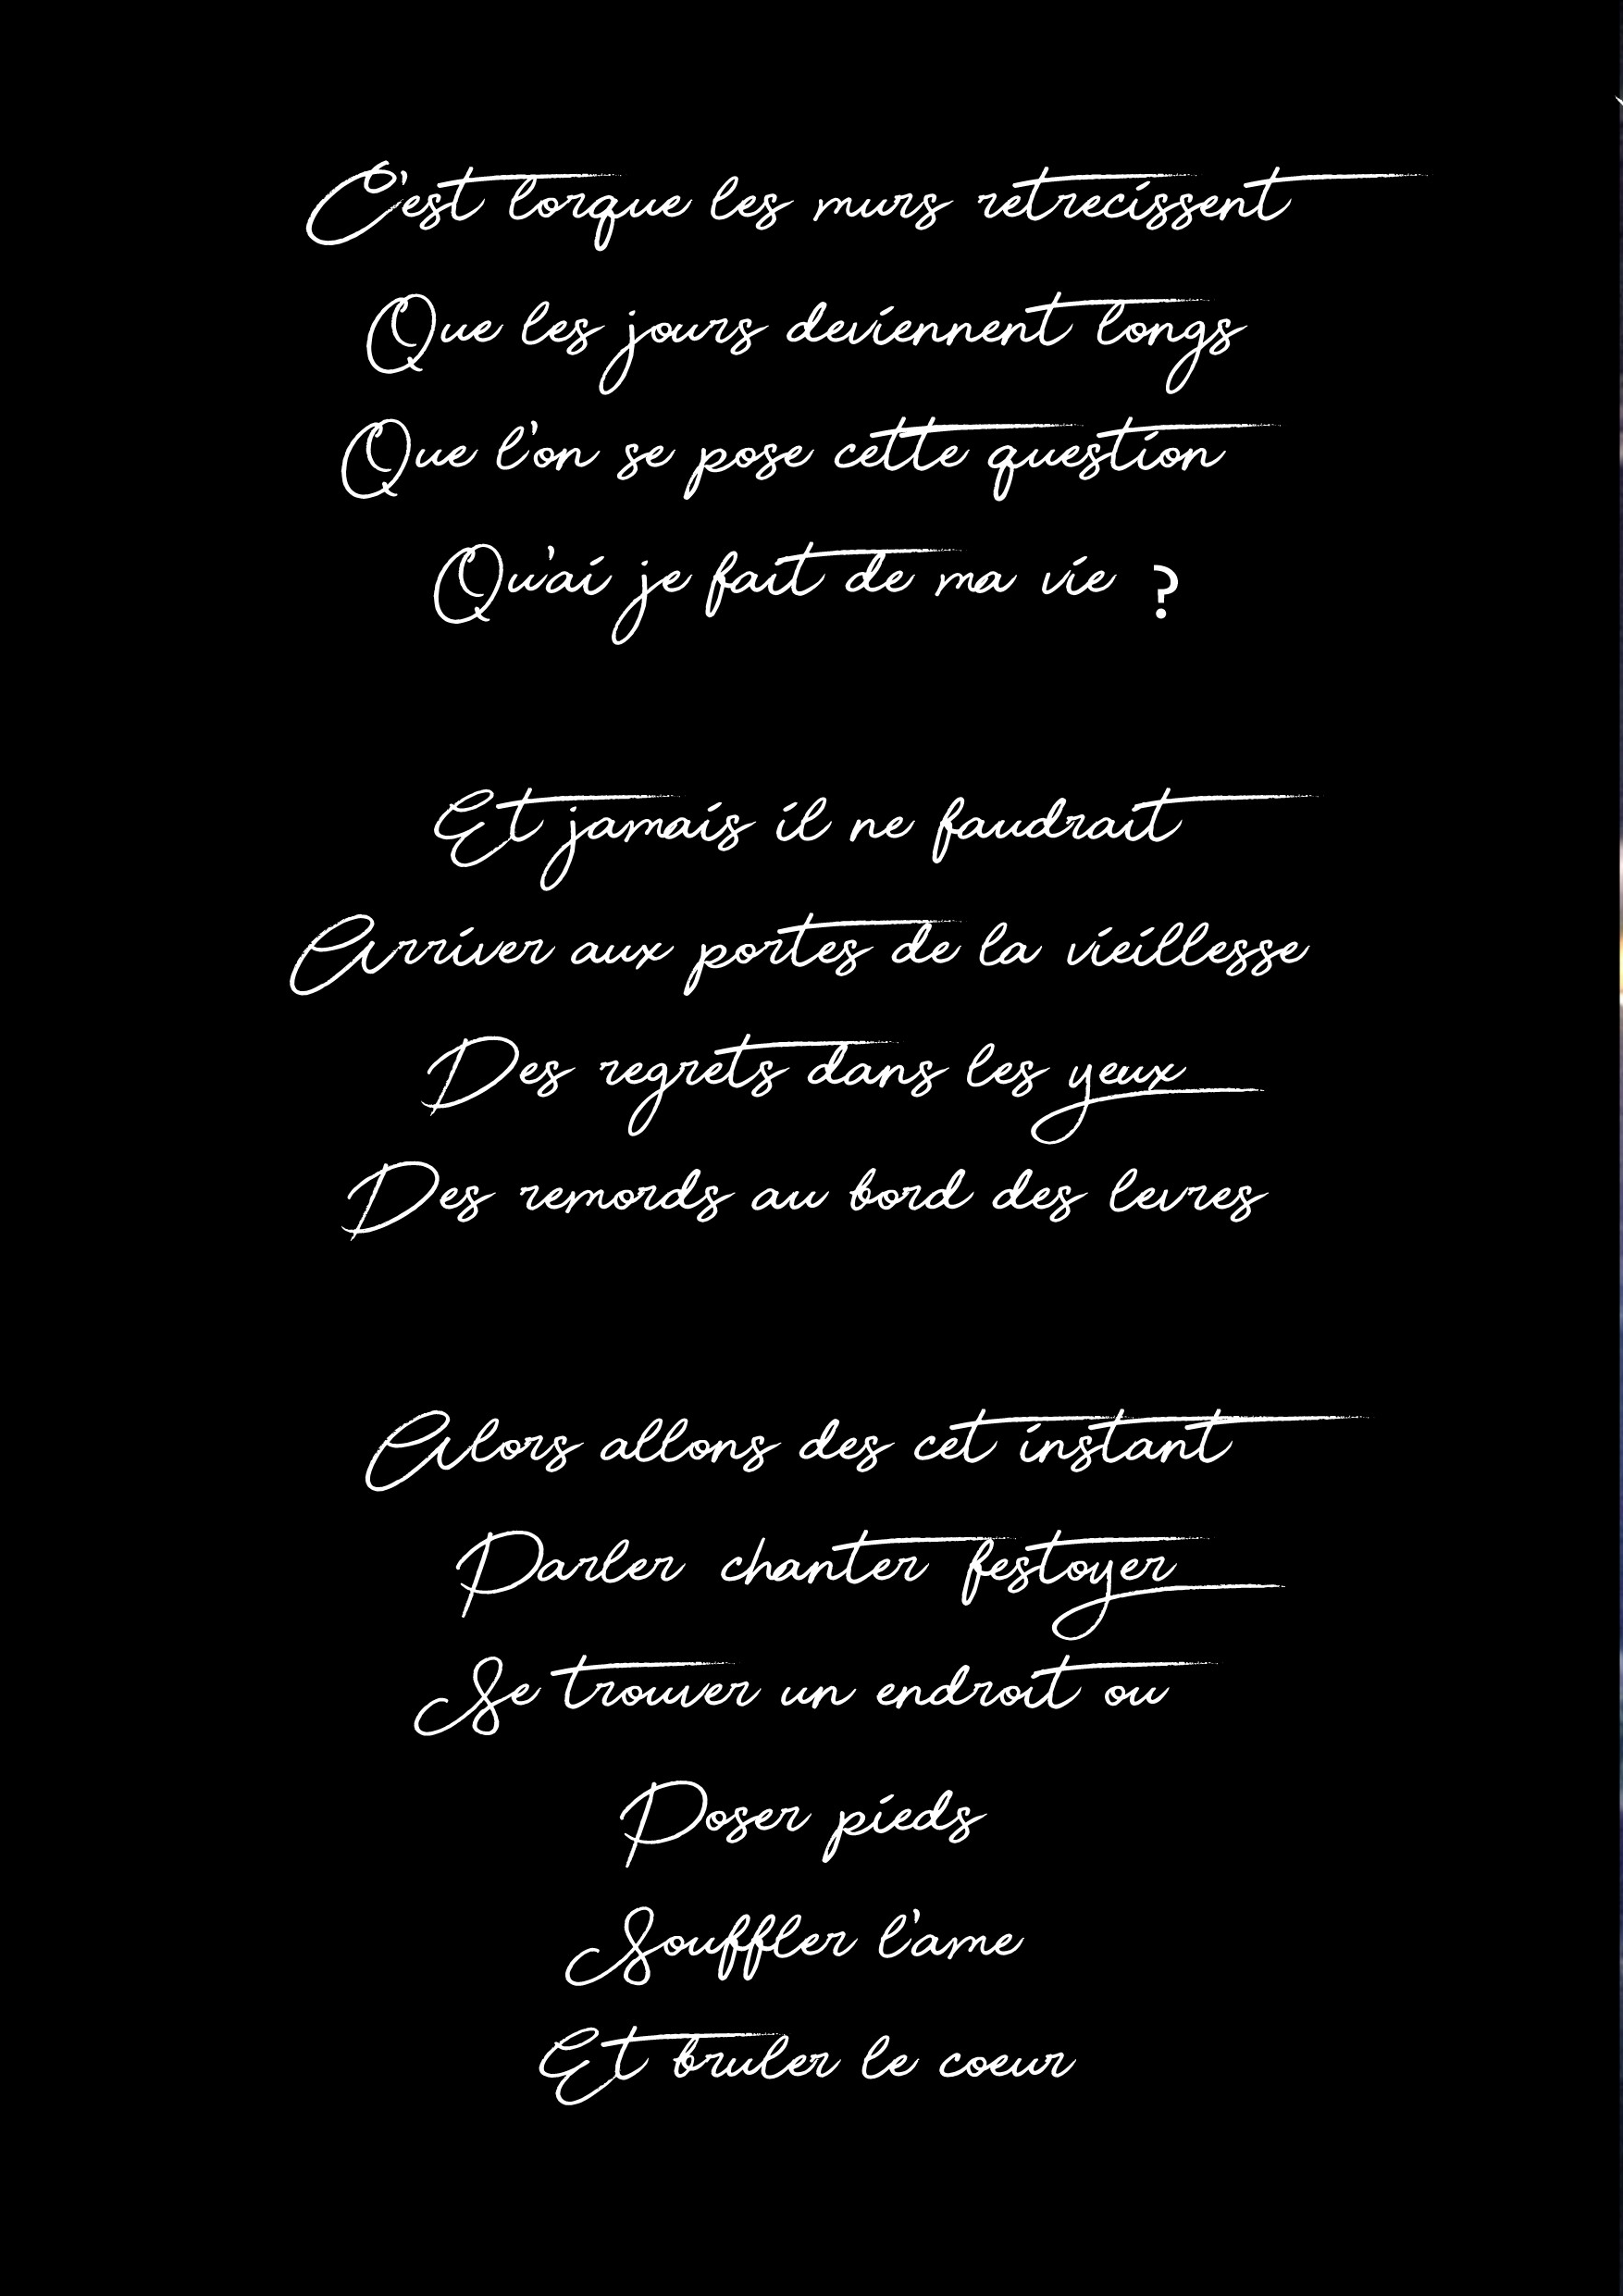 C'est lorque les murs retrecissent
Que les jours deviennent longs
Que l'on se pose cette question
Qu'ai je fait de ma vie ?
Et jamais il ne faudrait
Arriver aux portes de la vieillesse
Des regrets dans les yeux
Des remords au bord des levres
Alors allons des cet instant
Parler chanter festoyer
Se trouver un endroit ou
Poser pieds
Souffler l'ame
Et bruler le coeur